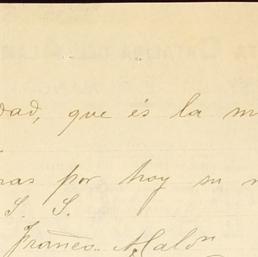 dad, que és la m
nas por hoy su
S. S.
Franco. Malón